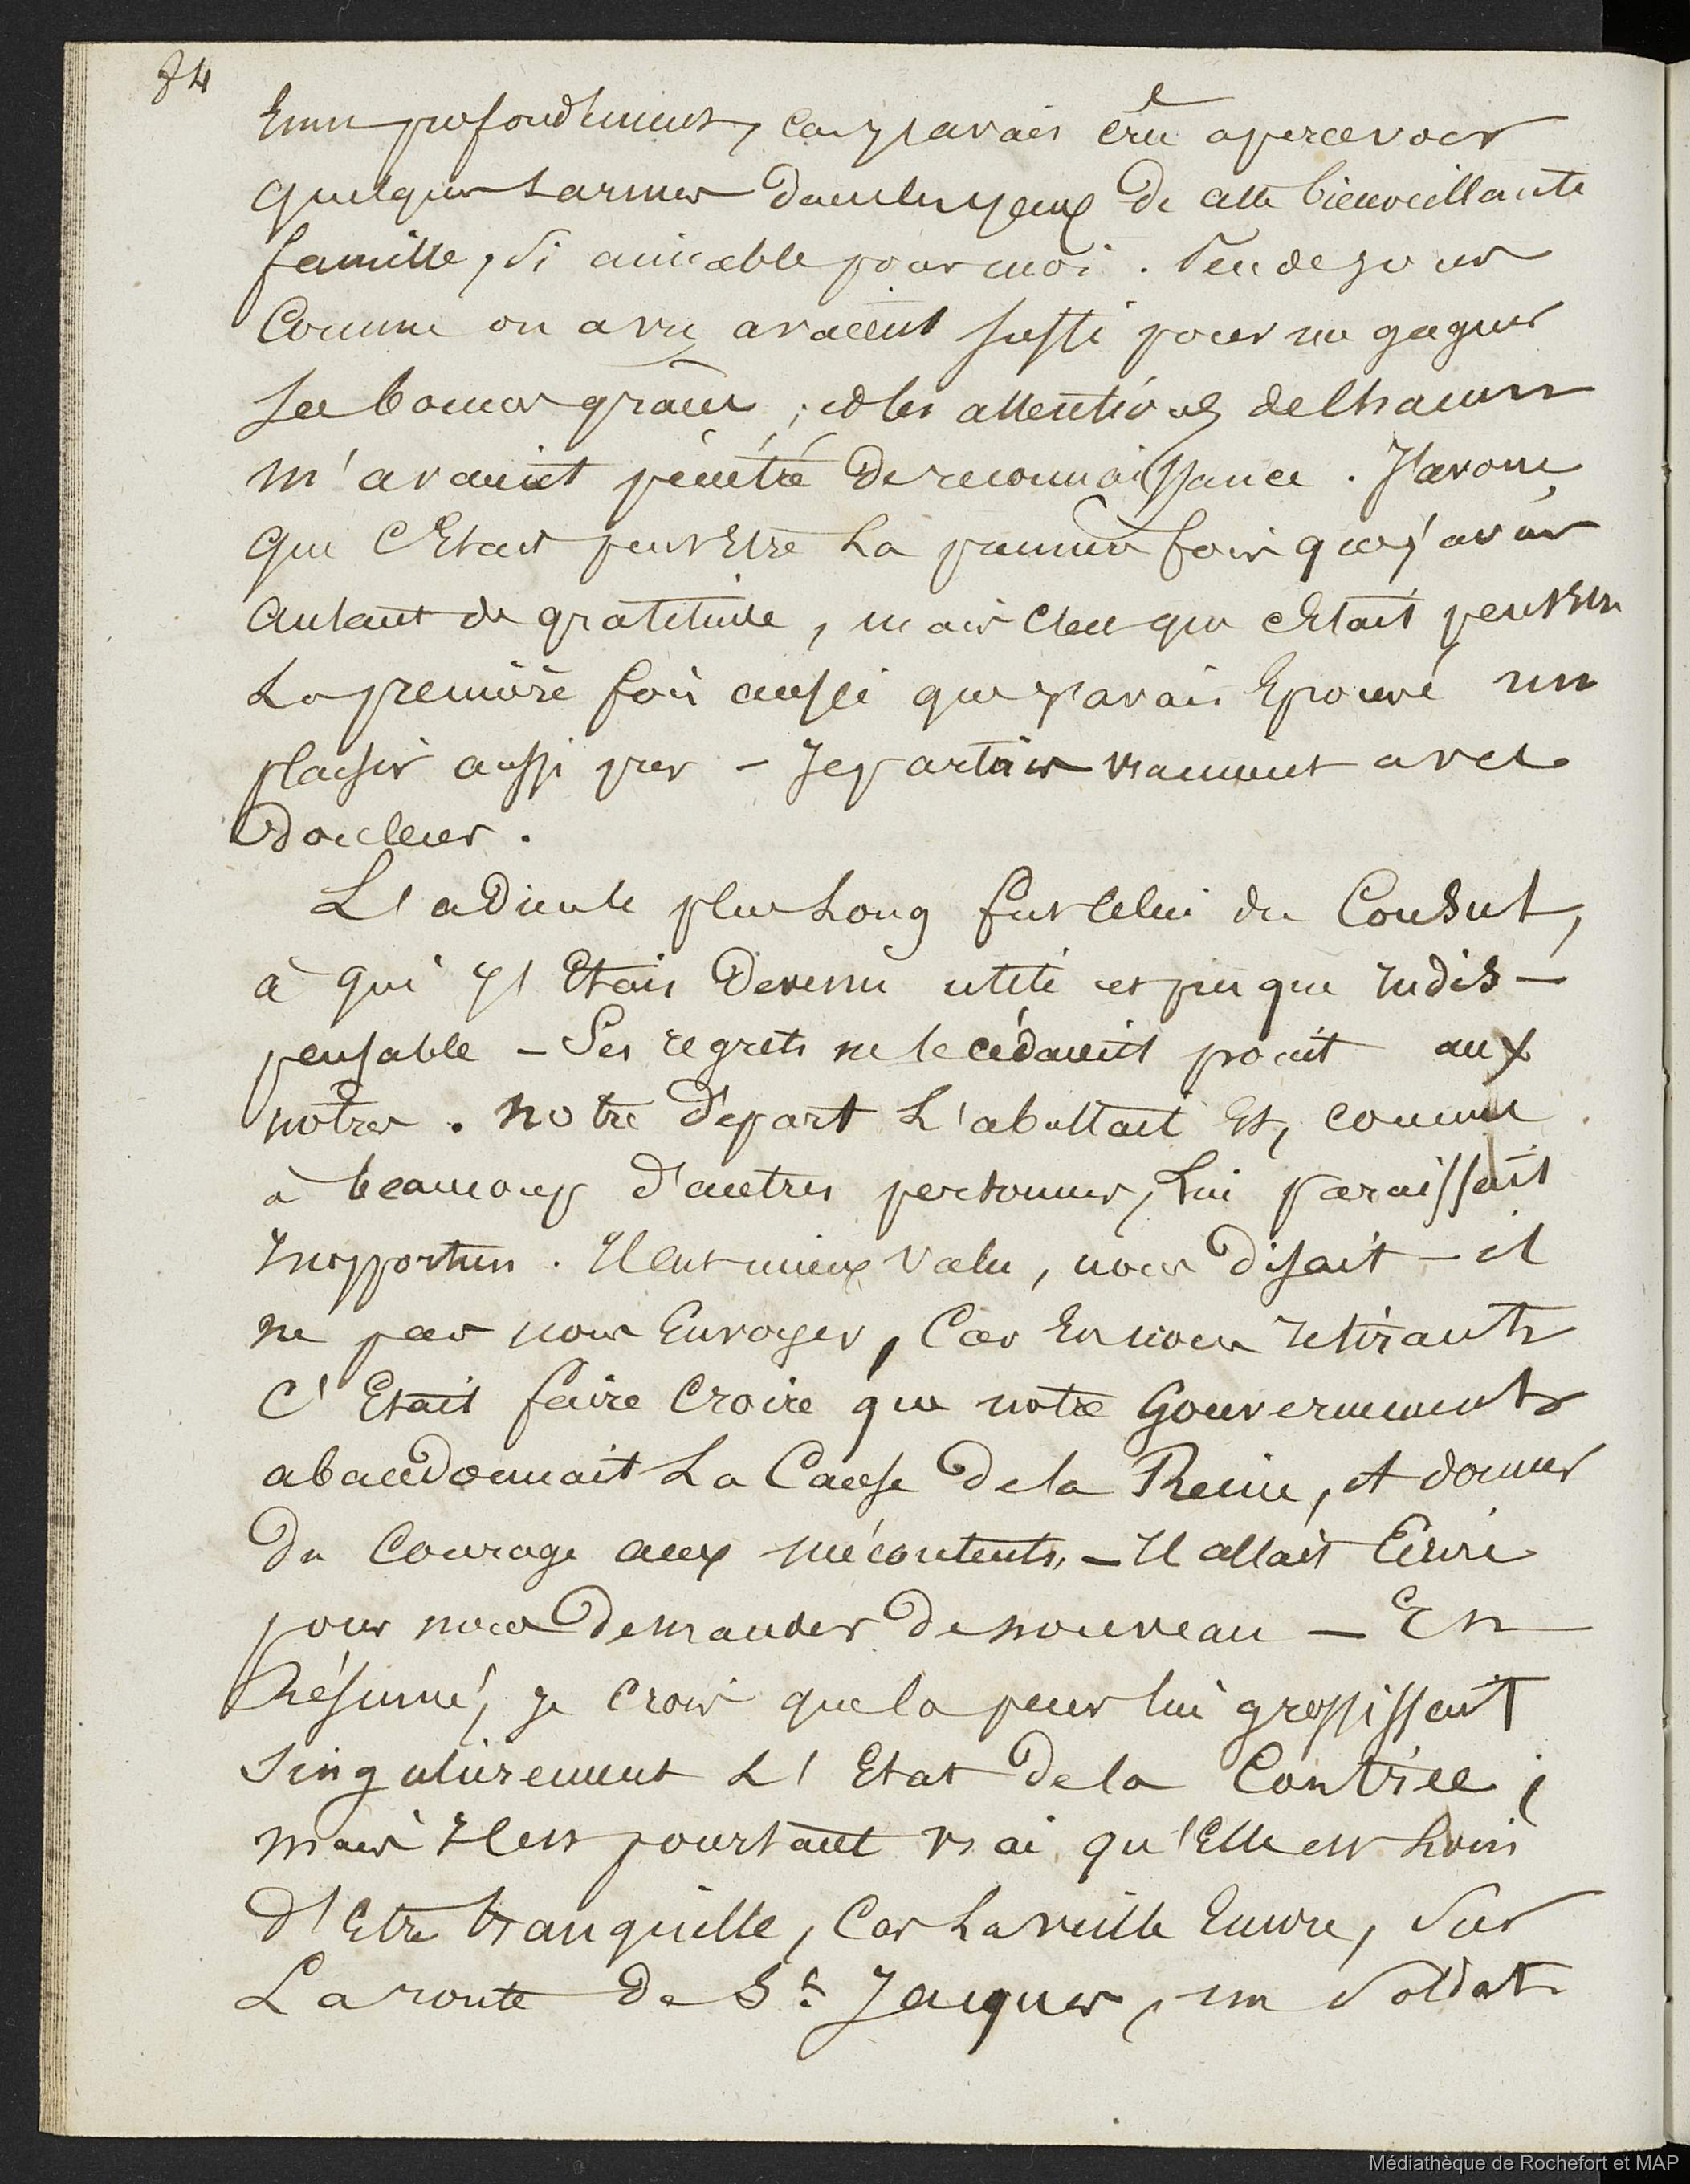 84
Emu profondément, car j'avais crû apercevoir
quelques larmes dans les yeux de cette bienveillante
famille, si aimable pour moi. Peu de jours
comme on a vu, avaient suffi pour me gagner
ses bonnes grâces ; et les attentions de chacun
m'avaient pénétré de reconnaissance. J'avoue
que c'Etait peut Etre la première fois que j'avais
autant de gratitude, mais c'est que c'Etait peut Etre
la première fois aussi que j'avais Eprouvé un
plaisir aussi pur – Je partais vraiment avec
douleur.
L'adieu le plus long fut celui du Consul,
à qui j'Etais devenu utile et presque indis–
pensable – Ses regrets ne le cédaient point aux
notres. Notre départ l'abattait Et, comme
à beaucoup d'autres personnes, lui paraissait
Inopportun. Il eut mieux valu, nous disait–il
ne pas nous Envoyer, car En nous retirant
c'Etait faire croire que notre Gouvernement
abandonnait la Cause de la Reine, et donner
du courage aux mécontents, – Il allait Ecrire
pour nous demander de nouveau – En
Résumé, je crois que la peur lui grossissait
singulièrement l'Etat de la Contrée ;
mais Il est pourtant vrai qu'Elle est loin
d'Etre tranquille, car la veille Encore, sur
La route de St. Jacques, un soldat
Médiathèque de Rochefort et MAP